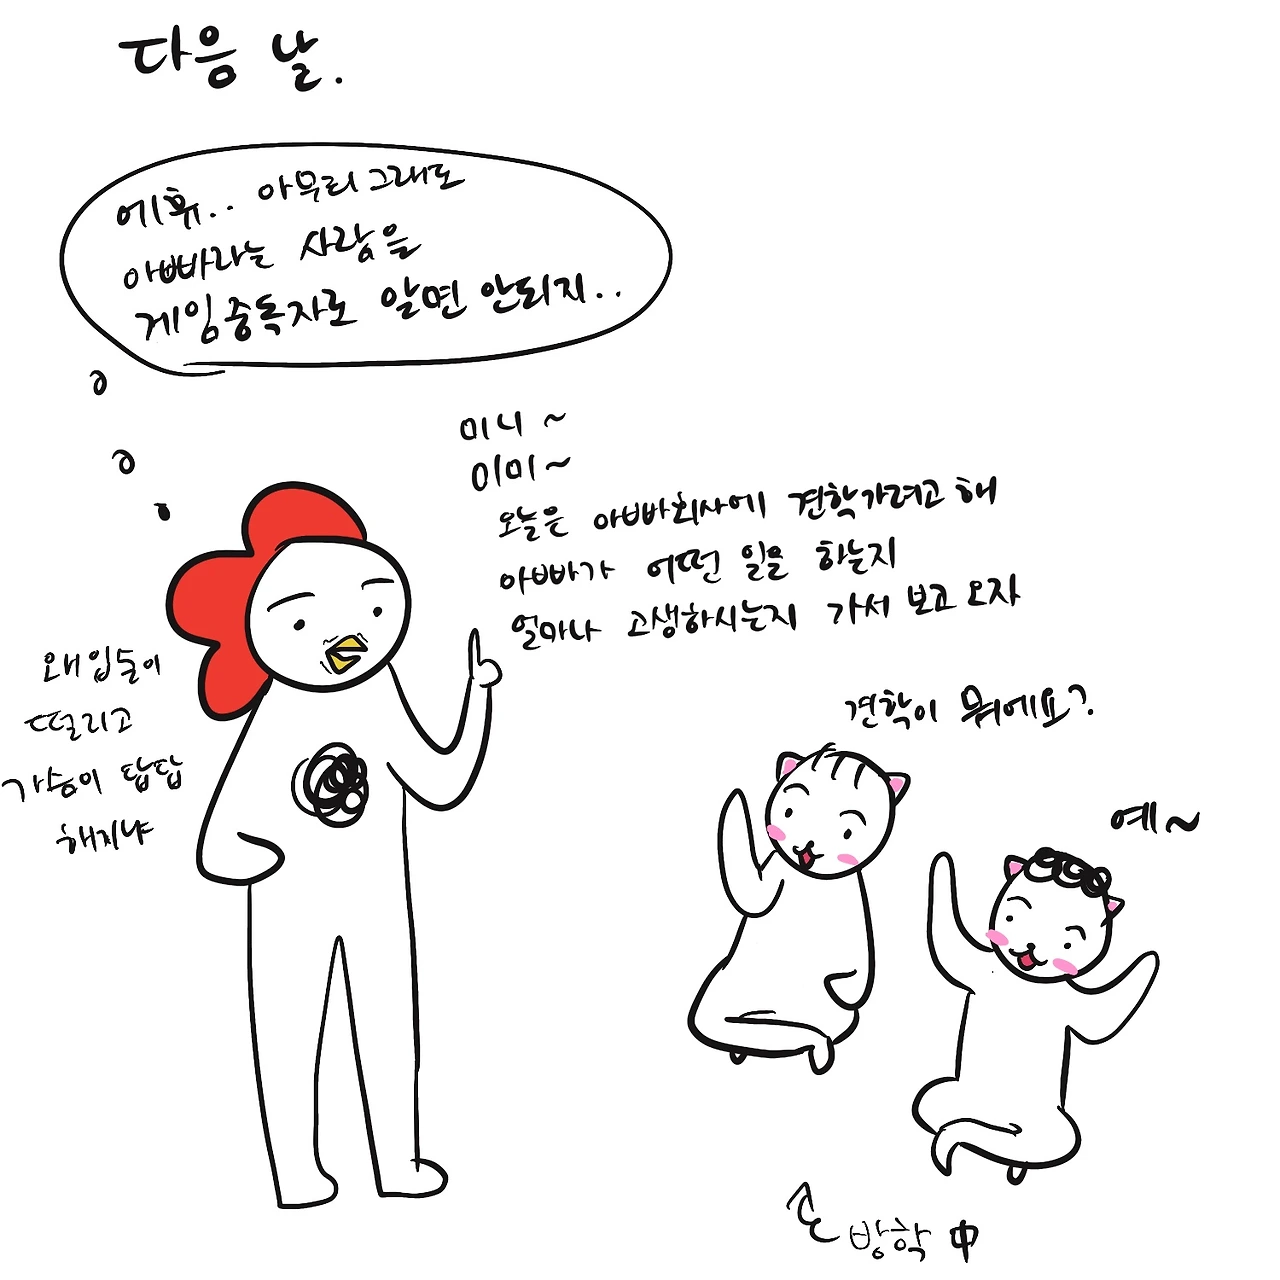 다음 날.
에휴.. 아무리 그래도
아빠라는 사람을
게임중독자로 알면 안되지..
미니 ~
이미~
오늘은 아빠회사에 견학가려고 해
아빠가 어떤 일을 하는지
얼마나 고생하시는지 가서 보고 오자
왜 입술이
떨리고
가슴이 답답
해지냐
견학이 뭐에요?
예~
방학 中